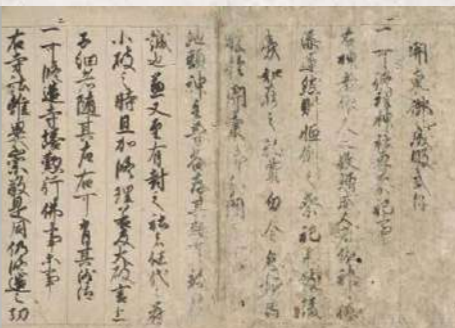 一 可修理神社専祭祀事
右神者依人之敬増威人者依神之徳
添運然則恒例之祭祀不致陵
夷如在之礼奠勿令怠慢
地頭神主等各存其趣可致
誠也兼又至有封之社者任代々符
小破之時且加修理若及大破言上
子細者随其左右可有其沙汰
一 可修造寺塔勤行佛事等事
右寺社雖異崇敬是同仍修造之功